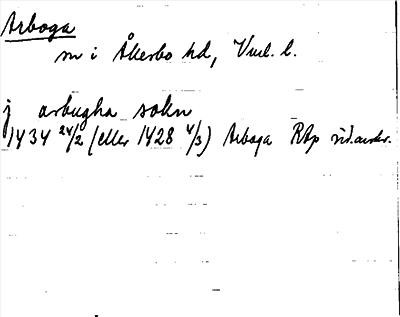 Arboga
sn i Åkerbo hd, Vml. l.
j arbugha sokn
1434 24/2 (eller 1428 4/3) Arboga RAp vid. avskr.